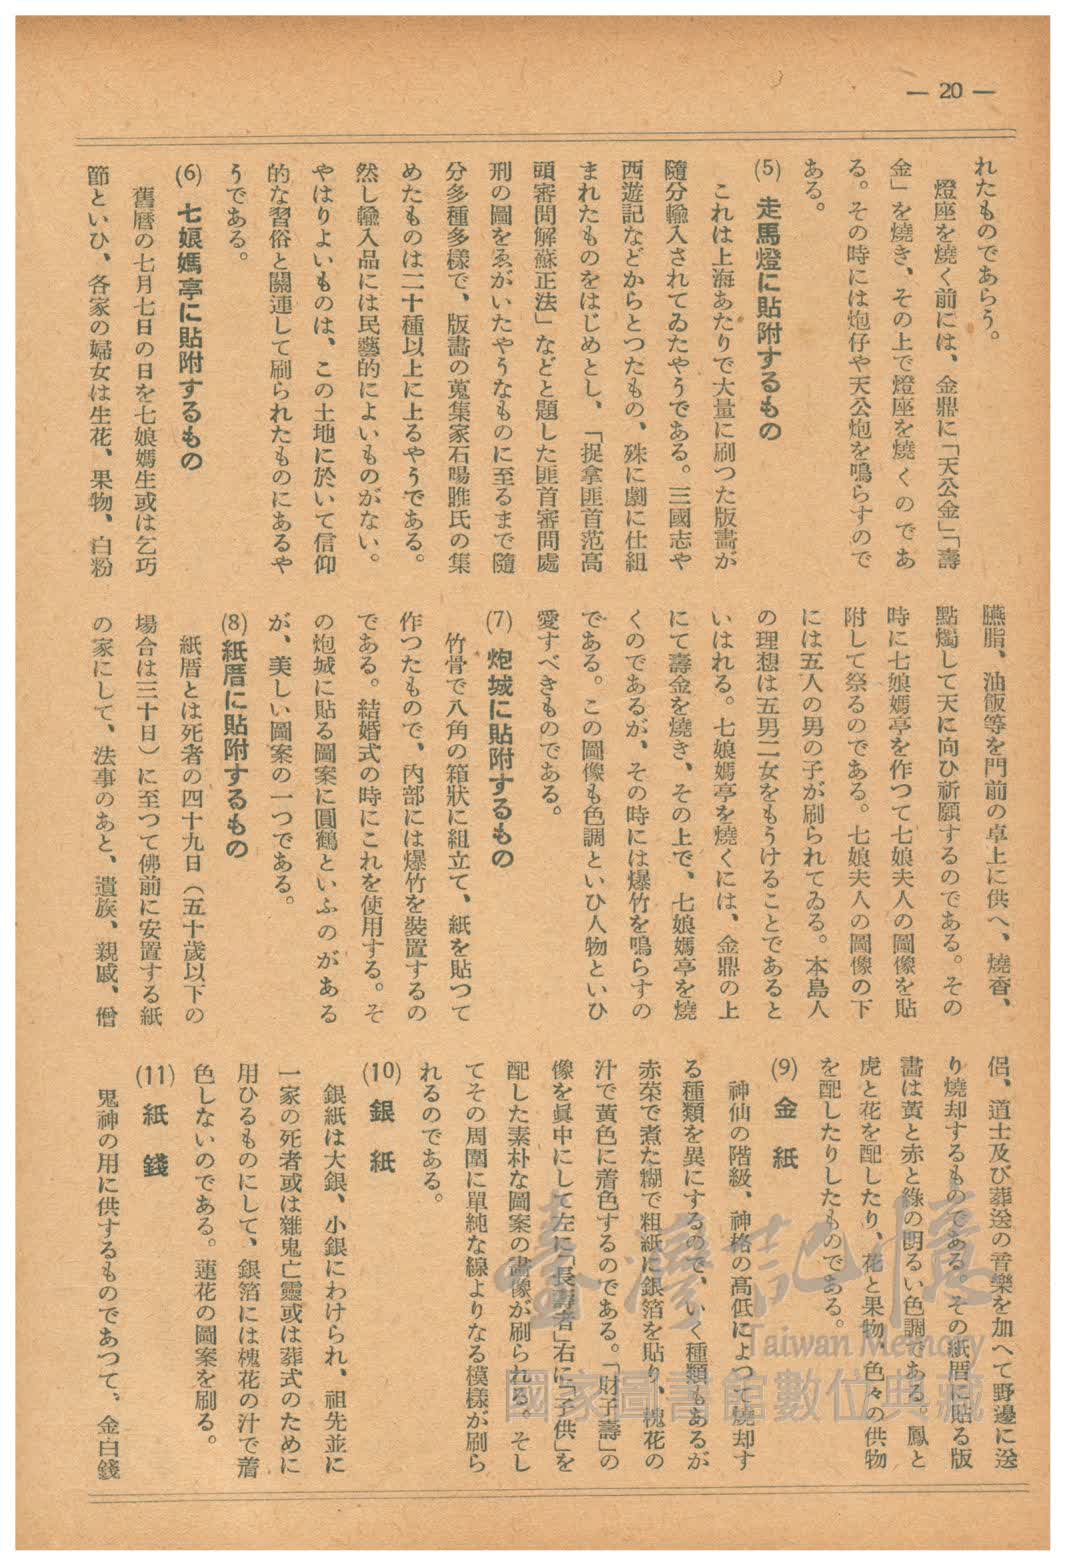 — 20 —
れたものであらう。
燈座を燒く前には、金鼎に「天公金」「壽
金」を燒き、その上で燈座を燒くのであ
る。その時には炮仔や天公炮を鳴らすので
ある。
(5) 走馬燈に貼附するもの
これは上海あたりで大量に刷つた版畫が
隨分輸入されてゐたやうである。三國志や
西遊記などからとつたもの、殊に劇に仕組
まれたものをはじめとし、「捉拿匪首范高
頭審問解蘇正法」などと題した匪首審問處
刑の圖をゑがいたやうなものに至るまで隨
分多種多樣で、版畫の蒐集家石暘睢氏の集
めたものは二十種以上に上るやうである。
然し輸入品には民藝的によいものがない。
やはりよいものは、この土地に於いて信仰
的な習俗と關連して刷られたものにあるや
うである。
(6) 七娘媽亭に貼附するもの
舊曆の七月七日の日を七娘媽生或は乞巧
節といひ、各家の婦女は生花、果物、白粉
臙脂、油飯等を門前の卓上に供へ、燒香、
點燭して天に向ひ祈願するのである。その
時に七娘媽亭を作つて七娘夫人の圖像を貼
附して祭るのである。七娘夫人の圖像の下
には五人の男の子が刷られてゐる。本島人
の理想は五男二女をもうけることであると
いはれる。七娘媽亭を燒くには、金鼎の上
にて壽金を燒き、その上で、七娘媽亭を燒
くのであるが、その時には爆竹を鳴らすの
である。この圖像も色調といひ人物といひ
愛すべきものである。
(7) 炮城に貼附するもの
竹骨で八角の箱狀に組立て、紙を貼つて
作つたもので、內部には爆竹を裝置するの
である。結婚式の時にこれを使用する。そ
の炮城に貼る圖案に圓鶴といふのがある
が、美しい圖案の一つである。
(8) 紙厝に貼附するもの
紙厝とは死者の四十九日（五十歲以下の
場合は三十日）に至つて佛前に安置する紙
の家にして、法事のあと、遺族、親戚、僧
侶、道士及び葬送の音樂を加へて野邊に送
り燒却するものである。その紙厝に貼る版
畫は黃と赤と綠の明るい色調である。鳳と
虎と花を配したり、花と果物、色々の供物
を配したりしたものである。
(9) 金紙
神仙の階級、神格の高低によつて燒却す
る種類を異にするので、いく種類もあるが
赤菜で煮た糊で粗紙に銀箔を貼り、槐花の
汁で黃色に着色するのである。「財子壽」の
像を眞中にして左に「長壽者」右に「子供」を
配した素朴な圖案の畫像が刷られる。そし
てその周圍に單純な線よりなる模樣が刷ら
れるのである。
(10) 銀紙
銀紙は大銀、小銀にわけられ、祖先並に
一家の死者或は雜鬼亡靈或は葬式のために
用ひるものにして、銀箔には槐花の汁で着
色しないのである。蓮花の圖案を刷る。
(11) 紙錢
鬼神の用に供するものであつて、金白錢
臺灣記憶
Taiwan Memory
國家圖書館數位典藏